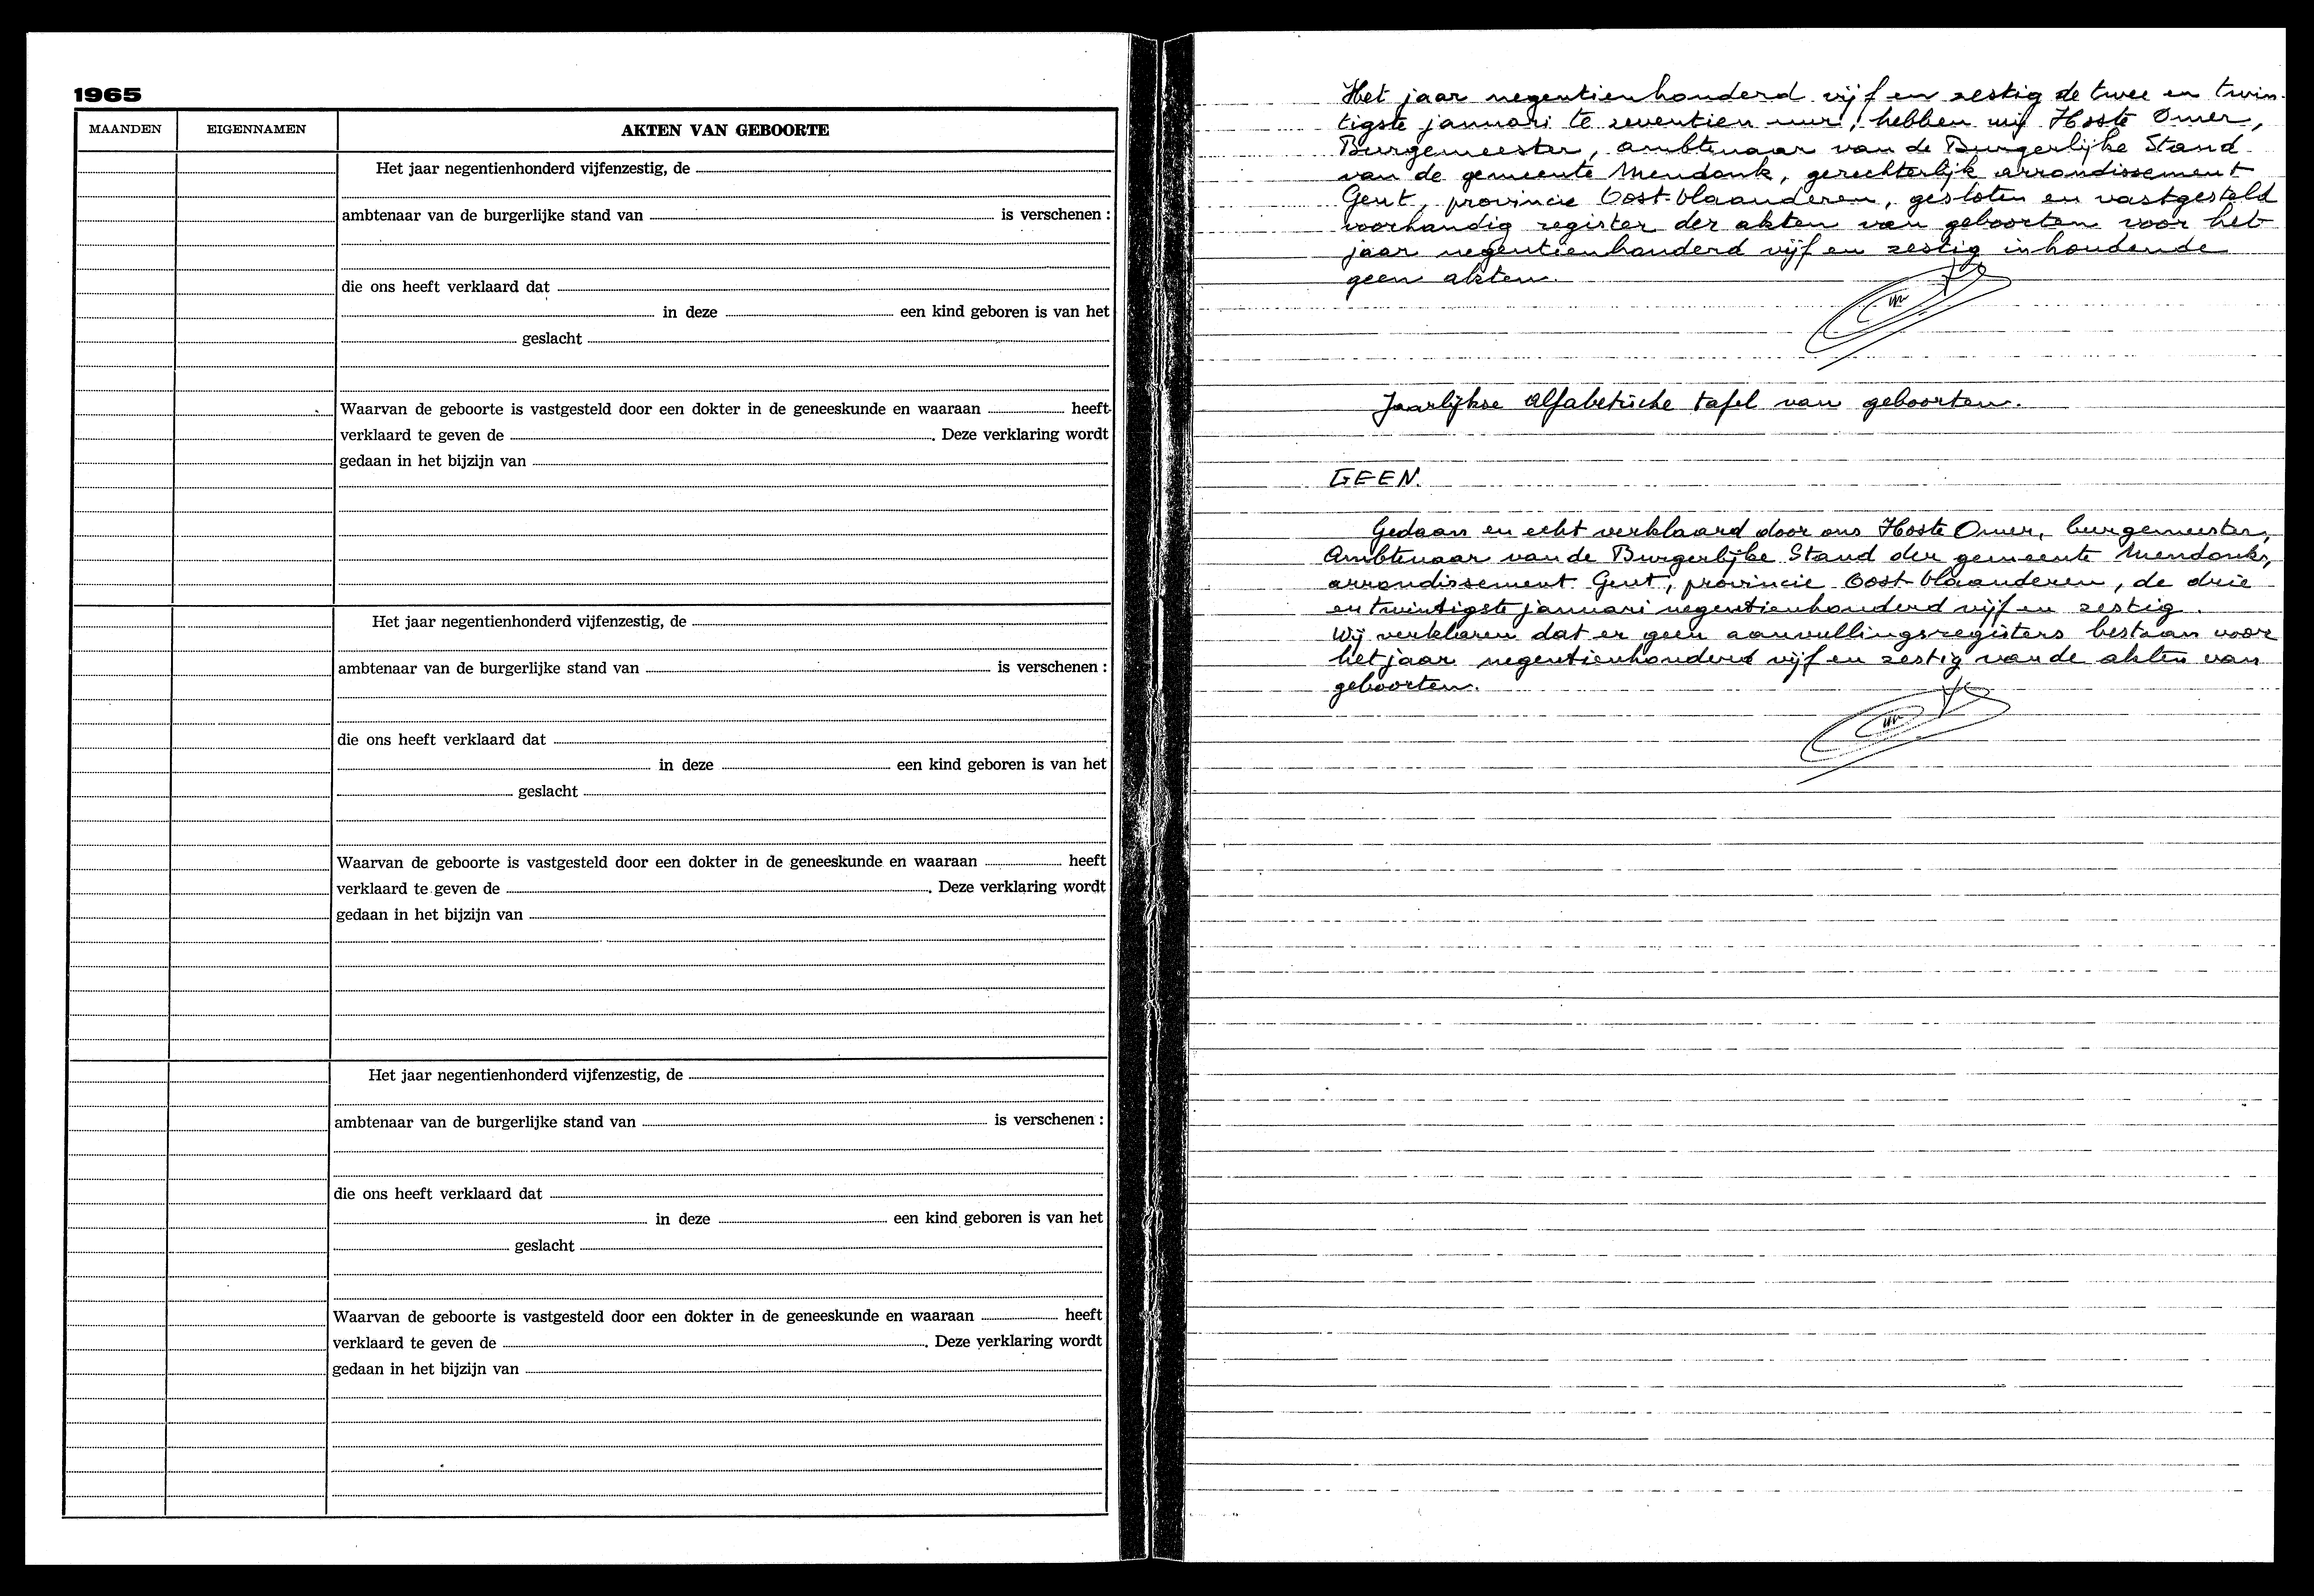 1965
MAANDEN EIGENNAMEN AKTEN VAN GEBOORTE
Het jaar negentienhonderd vijfenzestig, de
ambtenaar van de burgerlijke stand van is verschenen :
die ons heeft verklaard dat
in deze een kind geboren is van het
geslacht
Waarvan de geboorte is vastgesteld door een dokter in de geneeskunde en waaraan heeft
verklaard te geven de . Deze verklaring wordt
gedaan in het bijzijn van
Het jaar negentienhonderd vijfenzestig, de
ambtenaar van de burgerlijke stand van is verschenen :
die ons heeft verklaard dat
in deze een kind geboren is van het
geslacht
Waarvan de geboorte is vastgesteld door een dokter in de geneeskunde en waaraan heeft
verklaard te geven de . Deze verklaring wordt
gedaan in het bijzijn van
Het jaar negentienhonderd vijfenzestig, de
ambtenaar van de burgerlijke stand van is verschenen :
die ons heeft verklaard dat
in deze een kind geboren is van het
geslacht
Waarvan de geboorte is vastgesteld door een dokter in de geneeskunde en waaraan heeft
verklaard te geven de . Deze verklaring wordt
gedaan in het bijzijn van
Het jaar negentienhonderd vijf en zestig de twee en twin-
tigste januari te zeventien uur, hebben wij Hoste Omer,
Burgemeester, ambtenaar van de Burgerlijke Stand
van de gemeente Mendonk, gerechterlijk arrondissement
Gent, provincie Oost-Vlaanderen, gesloten en vastgesteld
voorhandig register der akten van geboorten voor het
jaar negentienhonderd vijf en zestig inhoudende
geen akten.
Jaarlijkse alfabetische tafel van geboorten.
GEEN.
Gedaan en echt verklaard door ons Hoste Omer, burgemeester,
Ambtenaar van de Burgerlijke Stand der gemeente Mendonk,
arrondissement Gent, provincie Oost-Vlaanderen, de drie
en twintigste januari negentienhonderd vijf en zestig.
Wij verklaren dat er geen aanvullingsregisters bestaan voor
het jaar negentienhonderd vijf en zestig van de akten van
geboorten.